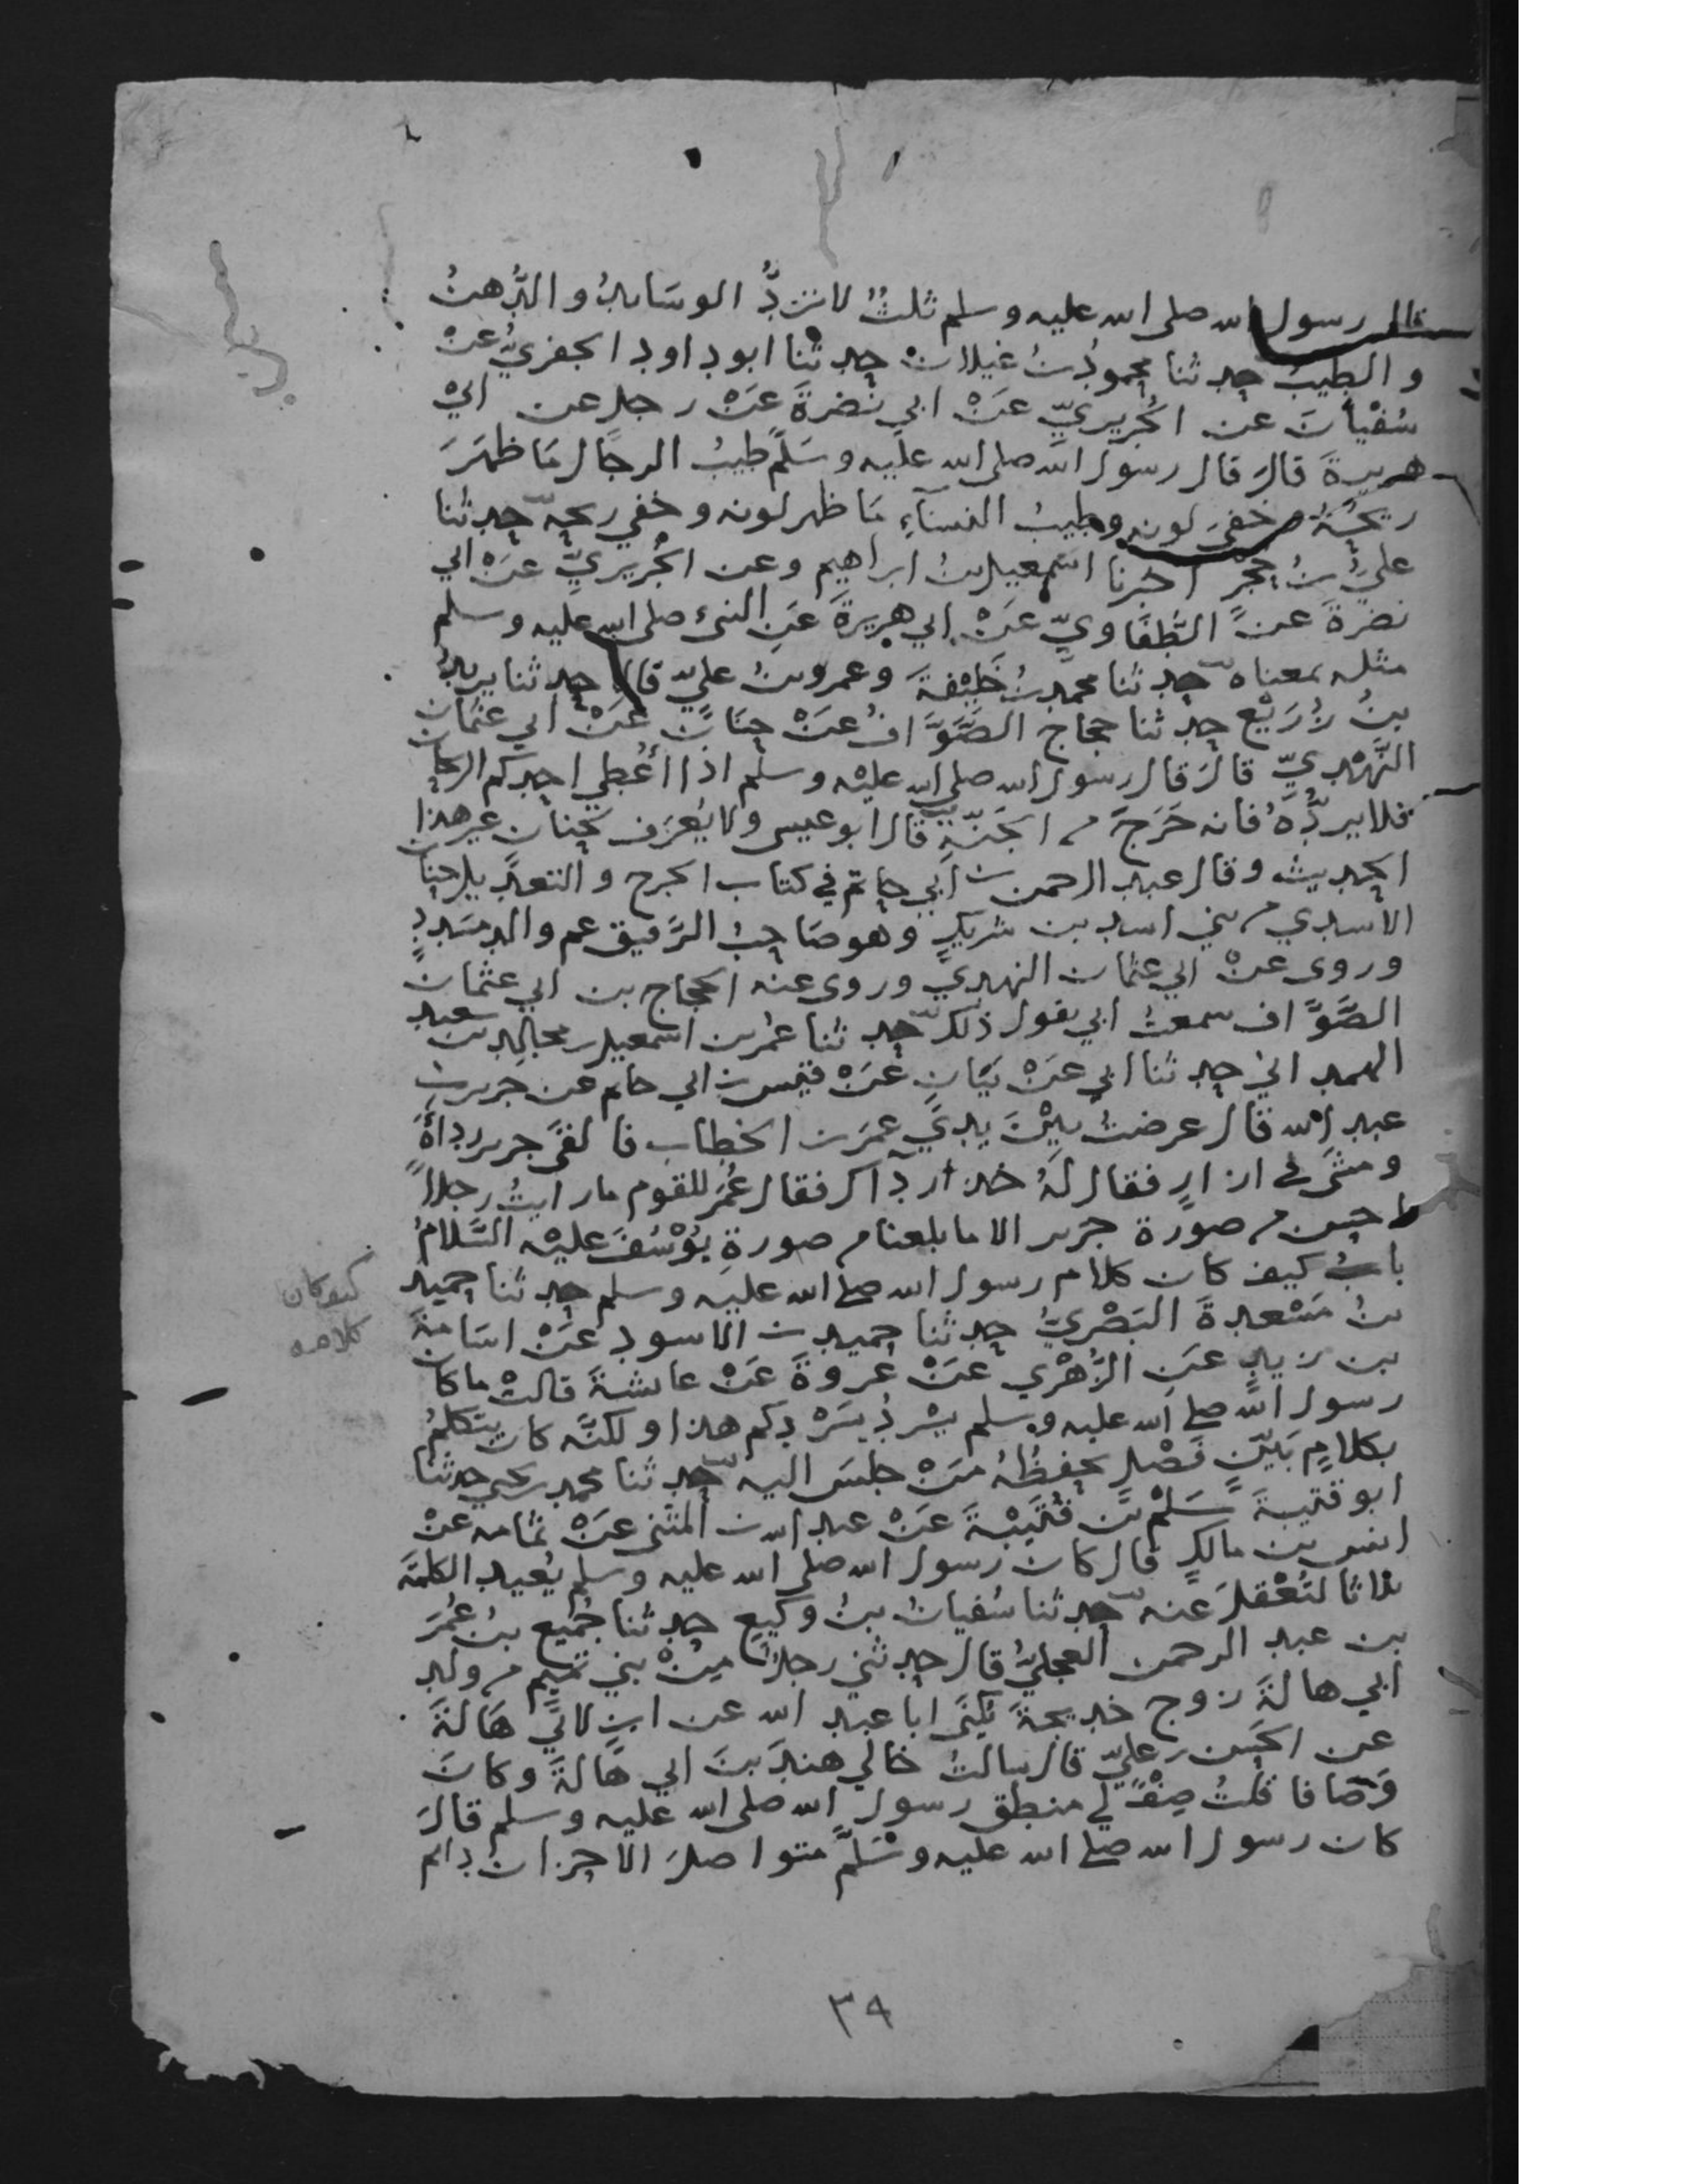 قال رسول الله صلى الله عليه وسلم ثلثٌ لا تردُّ الوسَائدُ والدُّهنُ
والطيبُ حدثنا محمودُ بنُ غيلان حدثنا ابو داود الحفريُّ عنْ
سُفْيانَ عن الجُريريِّ عنْ ابي نضرةَ عَنْ رجل عن ابي
هريرةَ قالَ قال رسول الله صلى الله عليه وسَلّم طيبُ الرجَال مَا ظهَرَ
ريحُهُ وخفيَ لونه وطيبُ النسَآءِ مَا ظهر لونه وخفي ريحه حدثنا
عليُّ بنُ حُجْر اخبرنا اسمعيل بنُ ابراهيم وعن الجُريريِّ عَنْ ابي
نضرةَ عن الطُّفَاويِّ عَنْ ابي هريرةَ عَنِ النبيّ صلى الله عليه وسلم
مثله بمعناه حدثنا محمد بنُ خَلِيْفةَ وعمرو بنُ عليّ قالا حدثنا يزيدُ
بنُ زُرَيْع حدثنا حجاج الصَّوَّافُ عَنْ حنَانٍ عَنْ ابي عثمان
النَّهْديِّ قالَ قال رسول الله صلى الله عليْه وسلم اذا أُعْطي احدكم الريحان
فلا يردُّهُ فانه خَرَجَ من الجَنّةِ قال ابو عيسى ولا يُعْرَف لحنان غير هذا
الحديث وقال عبد الرحمن بن ابي حاتم في كتاب الجرح والتعديل حنان
الاسدي من بني اسد بن شريكٍ وهو صَاحبُ الرَّقيق عم والد مسَددٍ
وروى عنْ ابي عثمان النهدي وروى عنه الحجاج بن ابي عثمان
الصَّوَّاف سمعتُ ابي يقول ذلك حدثنا عُمَر بن اسمعيل بن مجالِد بن سعيد
الهمداني حدثنا ابي عَنْ بيَانٍ عَنْ قيس بن ابي حازم عن جرير بن
عبد الله قال عرضتُ بَيْنَ يديَ عمرَ بن الخطاب فالقَى جرير ردأهُ
ومشَى في ازارٍ فقال لَهُ خذ ردآك فقال عُمَر للقوم ما رايتُ رجلاً
احسن من صورة جرير الا ما بلغنا من صورةِ يُوْسُفَ عليْه السَّلامُ
بابُ كيف كان كلام رسول الله صلى الله عليه وسلم حدثنا حميد
بنُ مَسْعدةَ البَصْريُّ حدثنا حميد بن الاسود عَنْ اسَامةَ
بن زيدٍ عَنِ الزُّهْري عَنْ عروةَ عَنْ عايشةَ قالتْ ما كان
رسول الله صلى الله عليه وسلم يسْردُ سَرْدكم هذا ولكنَّه كان يتكلمُ
بكلامٍ بَيّنٍ فَصْلٍ يحفظُهُ مَنْ جلسَ اليه حدثنا محمد بن يحيى حدثنا
ابو قتيبةَ سَلْم بن قُتَيْبةَ عَنْ عبد الله بن المثنى عَنْ ثمامه عَنْ
انس بن مالكٍ قال كان رسول الله صلى الله عليه وسلم يُعيد الكلمةَ
ثلاثا لتُعْقلَ عنه حدثنا سُفيانُ بنُ وكيع حدثنا جُميع بنُ عُمَرَ
بن عبد الرحمن العجليُّ قال حدثني رجلٌ مِنْ بني تميم من ولد
ابي هالةَ زوج خديجةَ يُكنَى ابا عبد الله عن ابنٍ لابي هَالةَ
عن الحسن بن عليّ قال سالتُ خالي هندَ بنَ ابي هَالةَ وكانَ
وَصّافا قلتُ صِفْ لي منطق رسول الله صلى الله عليه وسلم قالَ
كان رسول الله صلى الله عليه وسَلّم متواصلَ الاحزان دائم
كيف كان
كلامه
٣٩